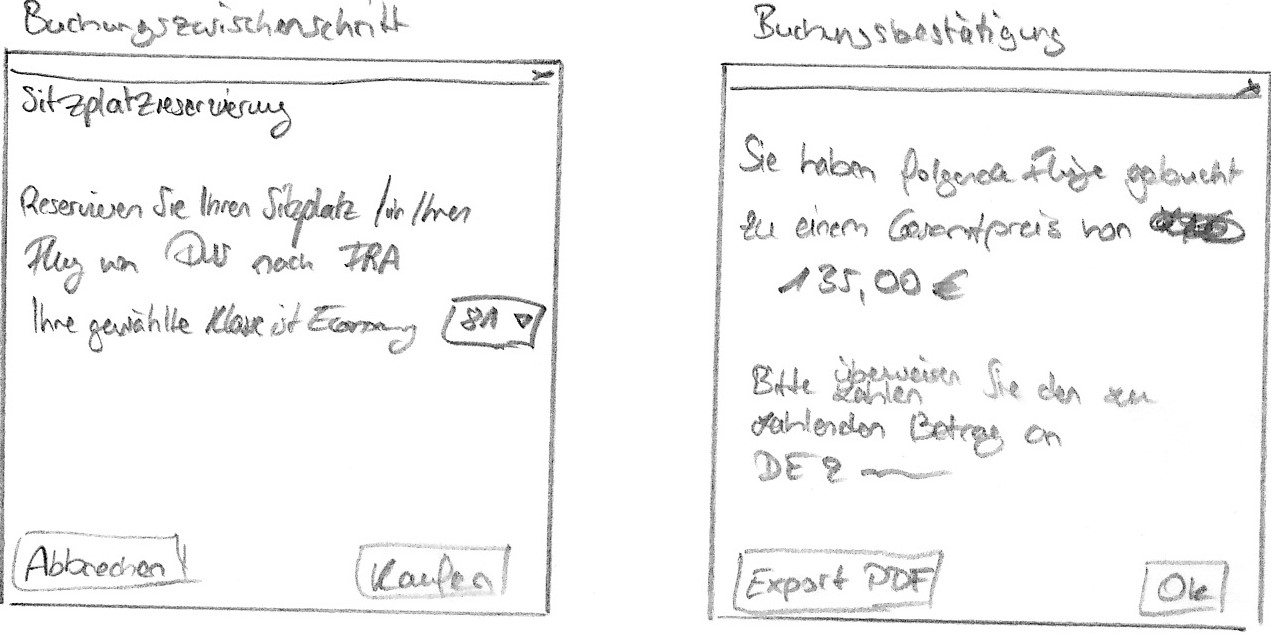 Buchungszwischenschritt
Sitzplatzreservierung
Reservieren Sie Ihren Sitzplatz für Ihren
Flug von DUS nach FRA
Ihre gewählte Klasse ist Economy
Abbrechen
Kaufen
Buchungsbestätigung
Sie haben folgende Flüge gebucht
zu einem Gesamtpreis von
135,00 €
Bitte überweisen Sie den zu
zahlen
zahlenden Betrag an
DE
Export PDF
Ok